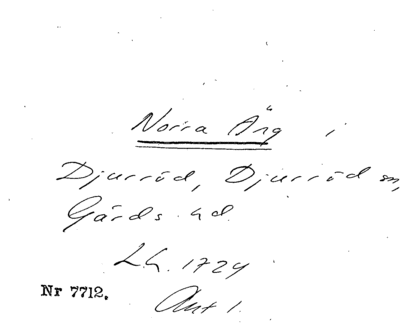 Norra Äng i
Djurröd, Djurröd sn,
Gärds hd.
Lh. 1724
Nr 7712.
Akt 1.